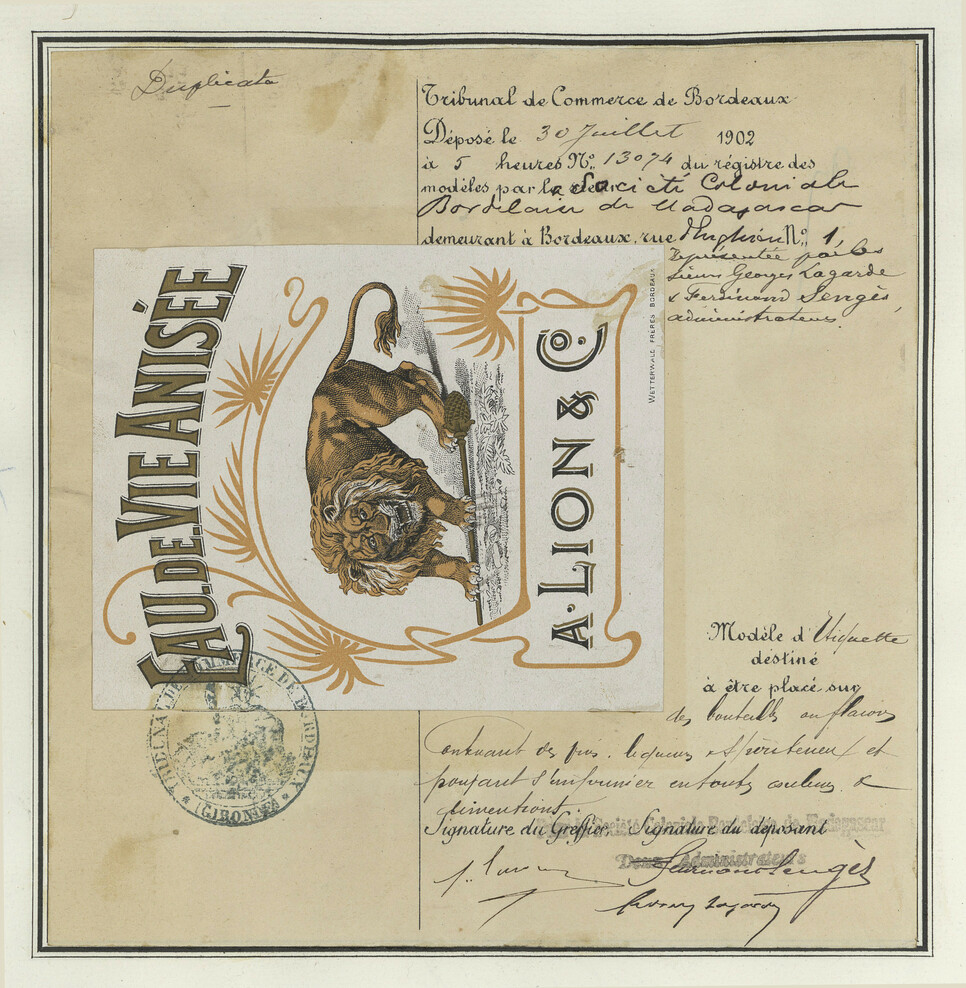 Duplicata
Tribunal de Commerce de Bordeaux
Déposé le 30 Juillet 1902
à 5 heures No. 13074 du régistre des
modèles par la Société Coloniale
Bordelaise de Madagascar
demeurant à Bordeaux, rue No. 1,
représentée par les
sieurs Georges Lagarde
& Ferdinand Sengès,
administrateurs.
EAU.DE.VIE ANISÉE
A. LION & Co.
WETTERWALD FRÈRES BORDEAUX
Modèle d'Etiquette
destiné
à être placé sur
des bouteilles ou flacons
Contenant des vins, liqueurs et spiritueux et
pouvant s'imprimer en toutes couleurs &
dimentions.
Signature du Greffier, Signature du déposant
Société Coloniale Bordelaise de Madagascar
Deux Administrateurs
Ferdinand Sengès
Georges Lagarde
TRIBUNAL DE COMMERCE DE BORDEAUX
(GIRONDE)